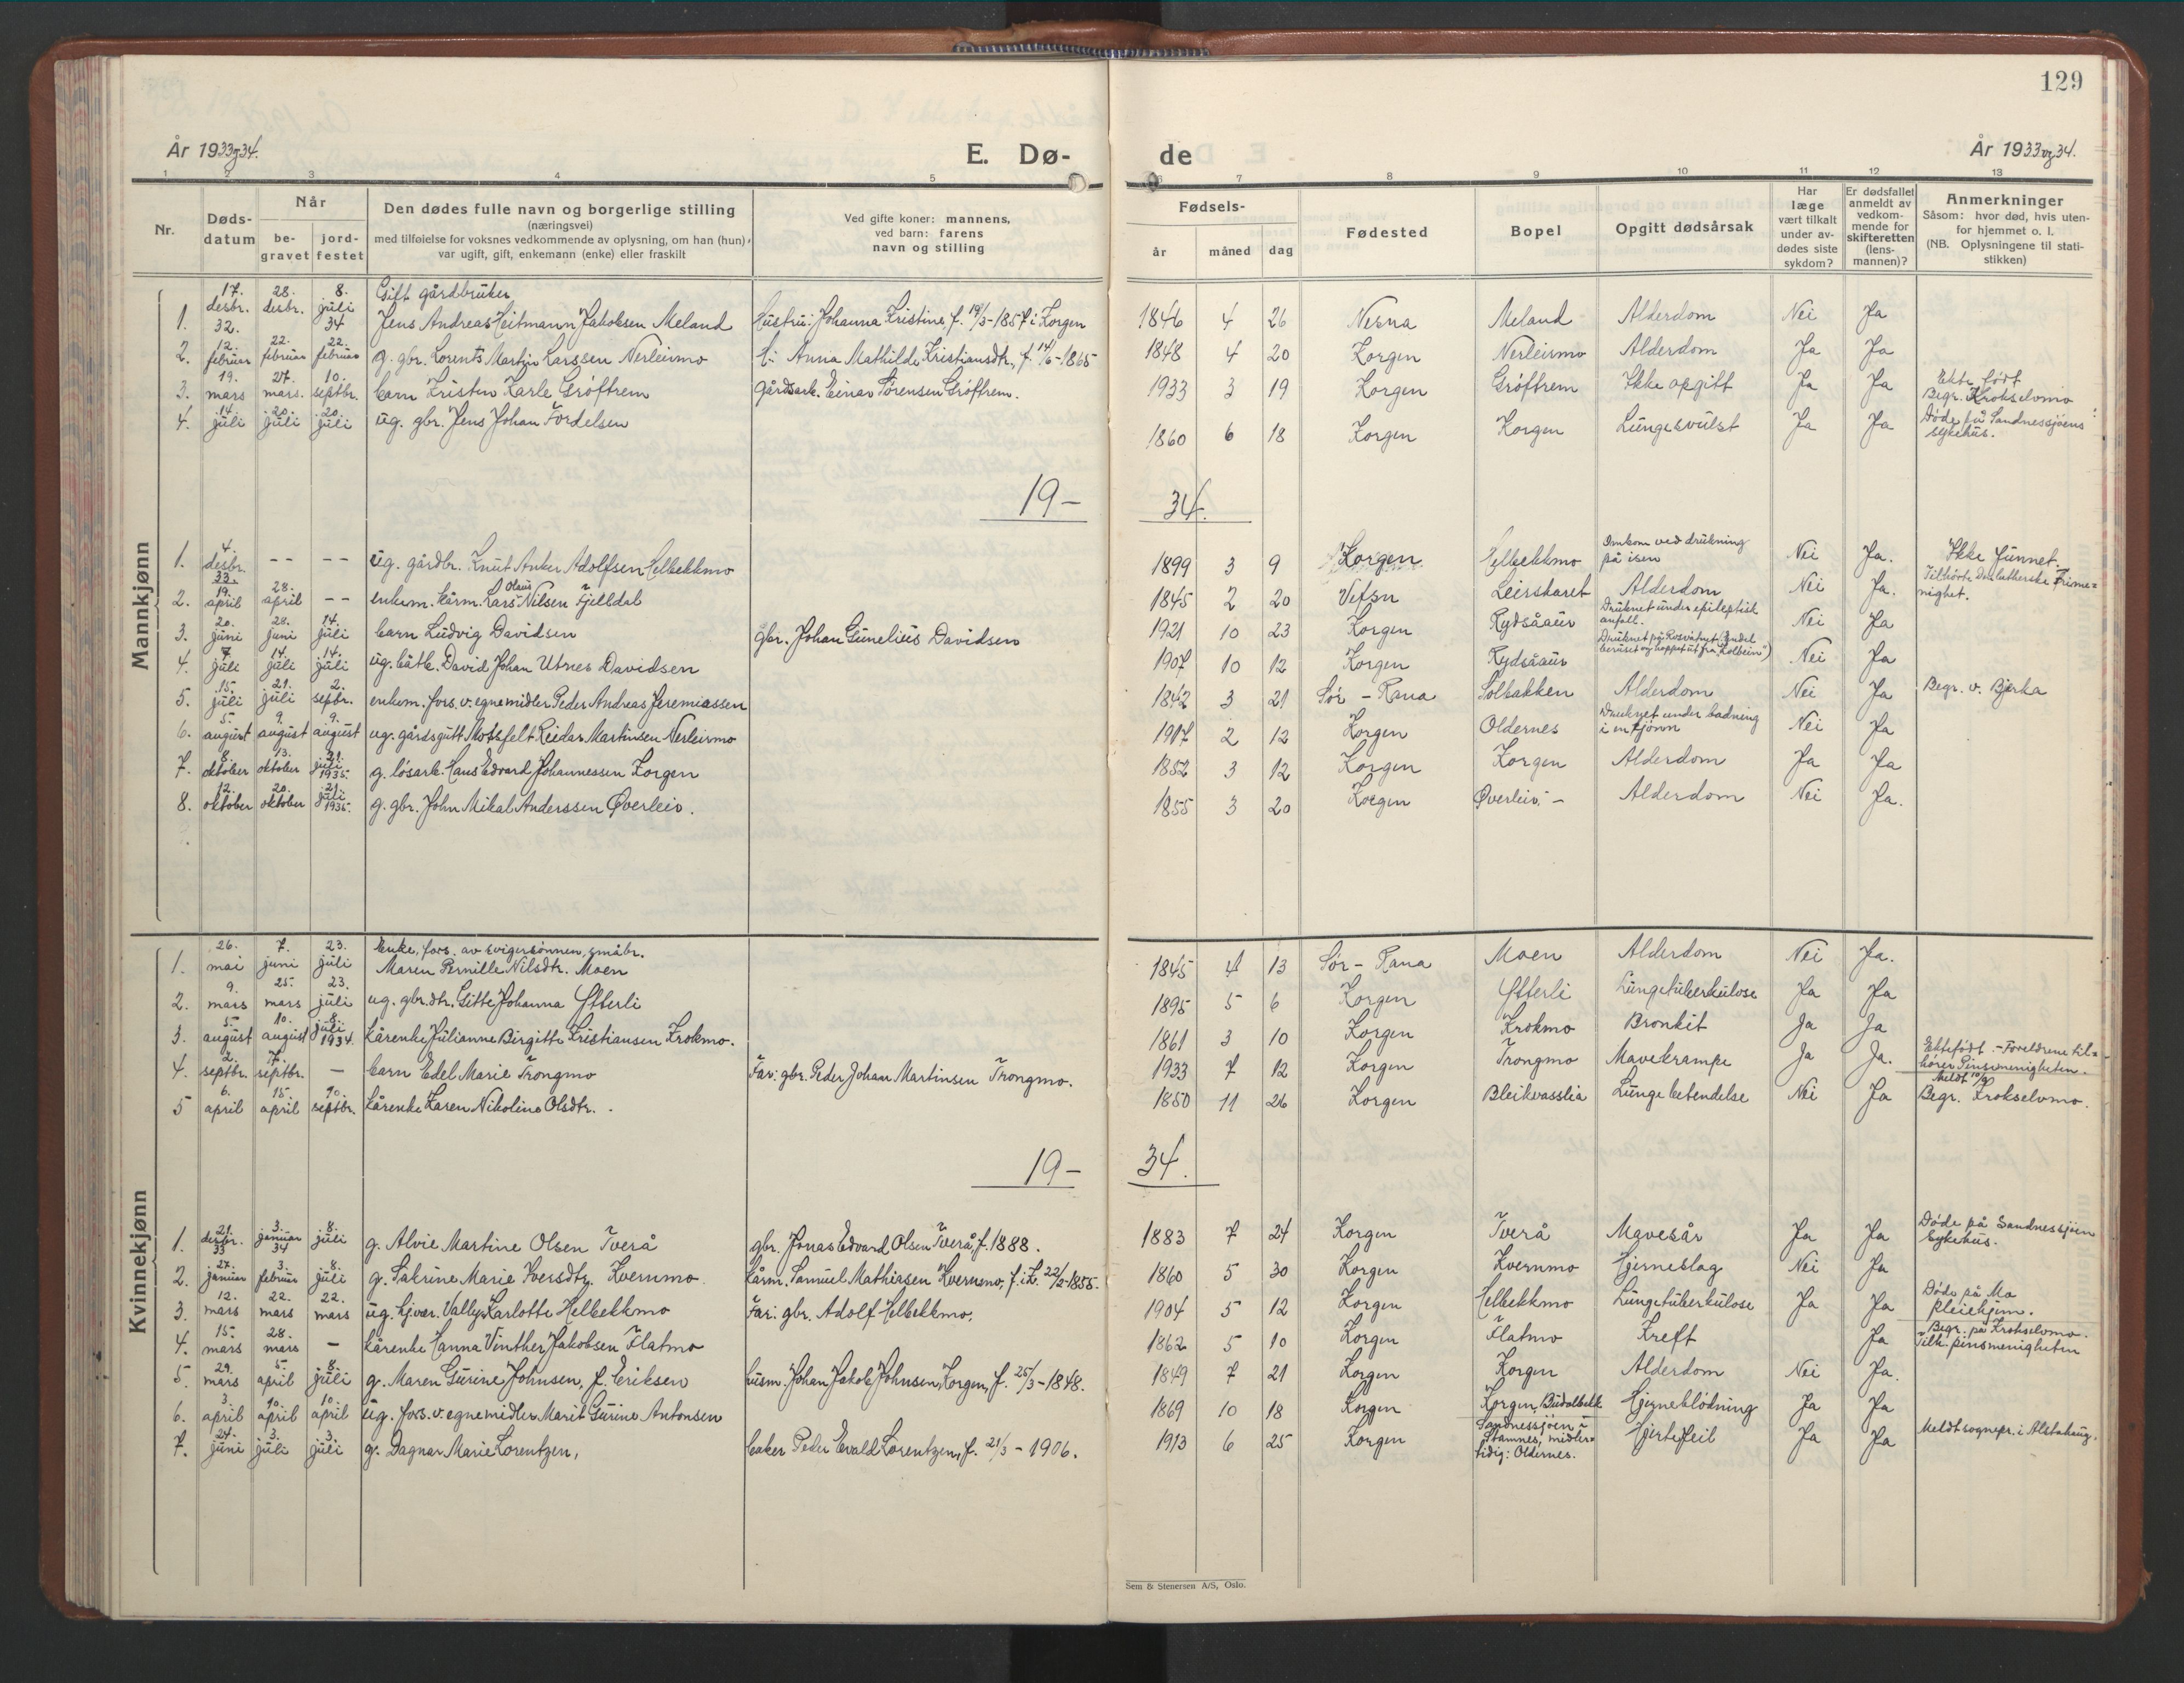 129
År 1933 og 34.
E. Dø-
de
År 1933 og 34.
1 2 3 4 5 6 7 8 9 10 11 12 13
Nr.
Døds-
datum
Når
be-
gravet
jord-
festet
Den dødes fulle navn og borgerlige stilling
(næringsvei)
med tilføielse for voksnes vedkommende av oplysning, om han (hun)
var ugift, gift, enkemann (enke) eller fraskilt
Ved gifte koner: mannens,
ved barn: farens
navn og stilling
Fødsels-
år måned dag
Fødested
Bopel
Opgitt dødsårsak
Har
læge
vært tilkalt
under av-
dødes siste
sykdom?
Er dødsfallet
anmeldt av
vedkom-
mende for
skifteretten
(lens-
mannen)?
Anmerkninger
Såsom: hvor død, hvis uten-
for hjemmet o. l.
(NB. Oplysningene til stati-
stikken)
Mannkjønn
1. 17. desbr. 32. 28. desbr. 8. juli 34 Gift gårdbruker
Jens Andreas Heitmann Jakobsen Meland Hustru: Johanna Kristine, f. 19/3-1857 i Korgen 1846 4 26 Nesna Meland Alderdom Nei Ja
2. 12. februar 22. februar 22. februar g. gbr. Lorents Martin Larssen Nerleirmo h: Anna Mathilde Kristiansdtr, f. 14/6-1865 1848 4 20 Korgen Nerleirmo Alderdom Ja Ja
3. 19. mars 27. mars. 10. septbr. barn Kristen Karle Grøftrem gårdsarb. Einar Sørensen Grøftrem. 1933 3 19 Korgen Grøftrem Ikke opgitt Ja Ja Ekte født
Begr. Krokselvmo
4. 14. juli 20. juli 20. juli ug. gbr. Jens Johan Tordelsen 1860 6 18 Korgen Korgen Lungesvulst Ja Ja Døde på Sandnessjøens
sykehus.
19-34.
1. 4. desbr. 33. -- -- ug. gårdbr. Knut Anker Adolfsen Helbekkmo 1899 3 9 Korgen Helbekkmo Omkom ved drukning
på isen Nei Ja. Ikke funnet.
2. 19. april 28. april -- enkem. kårm. Lars Olaus Nilsen Fjelldal 1845 2 20 Vefsn Leirskaret Alderdom Nei Ja. Tilhørte Den lutherske Frime-
nighet.
3. 20. juni 28. juni 14. juli barn Ludvig Davidsen gbr. Johan Gunelius Davidsen 1921 10 23 Korgen Rydsåaur Druknet under epileptisk
anfall. Nei Ja
4. 7. juli 14. juli 14. juli ug. båtb. David Johan Utnes Davidsen 1907 10 12 Korgen Rydsåaur Druknet på Røsvatnet
beruset og hoppet ut fra "Kolbein") Nei Ja
5. 15. juli 21. juli 2. septbr. enkem. fors. v. egne midler Peder Andreas Jeremiassen 1842 3 21 Sør-Rana Solbakken Alderdom Nei Ja Begr. v. Bjerka
6. 5. august 9. august 9. august ug. gårdsgutt Mossfelt Reidar Martinsen Nerleirmo 1917 2 12 Korgen Oldernes Druknet under badning
i en tjønn Nei Ja
7. 8. oktober 13. oktober 21. juli 1935. g. løsarb. Hans Edvard Johannessen Korgen 1852 3 12 Korgen Korgen Alderdom Ja Ja
8. 12. oktober 20. oktober 21. juli 1935. g. gbr. John Mikal Anderssen Øverleir. 1855 3 20 Korgen Øverleir.- Alderdom Nei Ja.
Kvinnekjønn
1. 26. mai 7. juni 23. juli Enke, fors. av svigersønnen, småbr.
Maren Pernille Nilsdtr. Moen 1845 4 13 Sør-Rana Moen Alderdom Nei Ja.
2. 9. mars 25. mars 23. juli ug. gbr.dtr. Gitte Johanna Ytterli 1895 5 6 Korgen Ytterli Lungetuberkulose Ja Ja
3. 5. august 10. august 8. juli 1934. kårenke Julianne Birgitte Kristiansen Krokmo. 1861 3 10 Korgen Krokmo Bronkit Ja Ja
4. 2. septbr. 7. septbr. - barn Edel Marie Trongmo Far: gbr. Peder Johan Martinsen Trongmo. 1933 7 12 Korgen Trongmo Mavekrampe Ja Ja. Ektefødt.-Foreldrene til-
hører Pinsemenigheten.
Meldt 10/9
5 6. april 15. april 10. septbr. kårenke Karen Nikoline Olsdtr. 1850 11 26 Korgen Bleikvasslia Lungebetendelse Nei Ja Begr. Krokselvmo.
19-34.
1. 21. desbr. 33 3. januar 34 8. juli g. Alvie Martine Olsen Tverå gbr. Jonas Edvard Olsen Tverå, f. 1888. 1883 7 24 Korgen Tverå Mavesår Ja Ja Døde på Sandnessjøen
Sykehus.
2. 27. januar 3. februar 8. juli g. Sakrine Marie Iversdtr. Kvernmo kårm. Samuel Mathiasen Kvernmo, f. i K. 22/2-1855. 1860 5 30 Korgen Kvernmo Hjerneslag Nei Ja
3. 12. mars 22. mars 22. mars ug. hjvær. Vally Karlotte Helbekkmo Far: gbr. Adolf Helbekkmo. 1904 5 12 Korgen Helbekkmo Lungetuberkulose Ja Ja Døde på Mo
pleiehjem.
4. 15. mars 28. mars - kårenke Hanna Vinther Jakobsen Flatmo 1862 5 10 Korgen Flatmo Kreft Ja Begr. på Krokselvmo.
Tilh. pinsmenigheten
5. 29. mars 5. april 8. juli g. Maren Gurine Johnsen, f. Eriksen husm. Johan Jakob Johnsen, Korgen, f. 25/3-1848. 1849 7 21 Korgen Korgen Alderdom Nei Ja.
6. 3. april 10. april 10. april ug. fors. v. egne midler Marit Gurine Antonsen 1869 10 18 Korgen Korgen, Budalbekk Hjerneblødning Ja Ja
7. 24. juni 3. juli 3. juli g. Dagnar Marie Lorentzen, baker Peder Evald Lorentzen, f. 21/3-1906. 1913 6 25 Korgen Sandnessjøen i
Stamnes, midler-
tidig: Oldernes. Hjertefeil Ja Ja Meldt sognepr. i Alstahaug.
Sem & Stenersen A/S, Oslo.